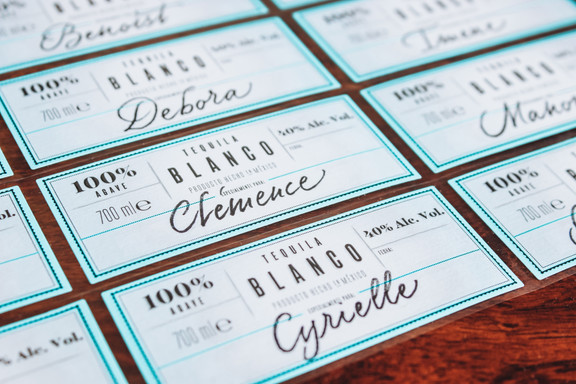 Benoist
TEQUILA
100%
BLANCO
40% Alc. Vol.
AGAVE
700 ml e
Debora
TEQUILA
100%
BLANCO
AGAVE
Imene
TEQUILA
100%
BLANCO
40% Alc. Vol.
AGAVE
PRODUCTO HECHO EN MÉXICO
700 ml e
Clemence
TEQUILA
100%
BLANCO
AGAVE
700 ml e
TEQUILA
100%
BLANCO
40% Alc. Vol.
AGAVE
PRODUCTO HECHO EN MÉXICO
700 ml e
Cyrielle
100%
AGAVE
700 ml e
% Alc. Vol.
% Alc. Vol.